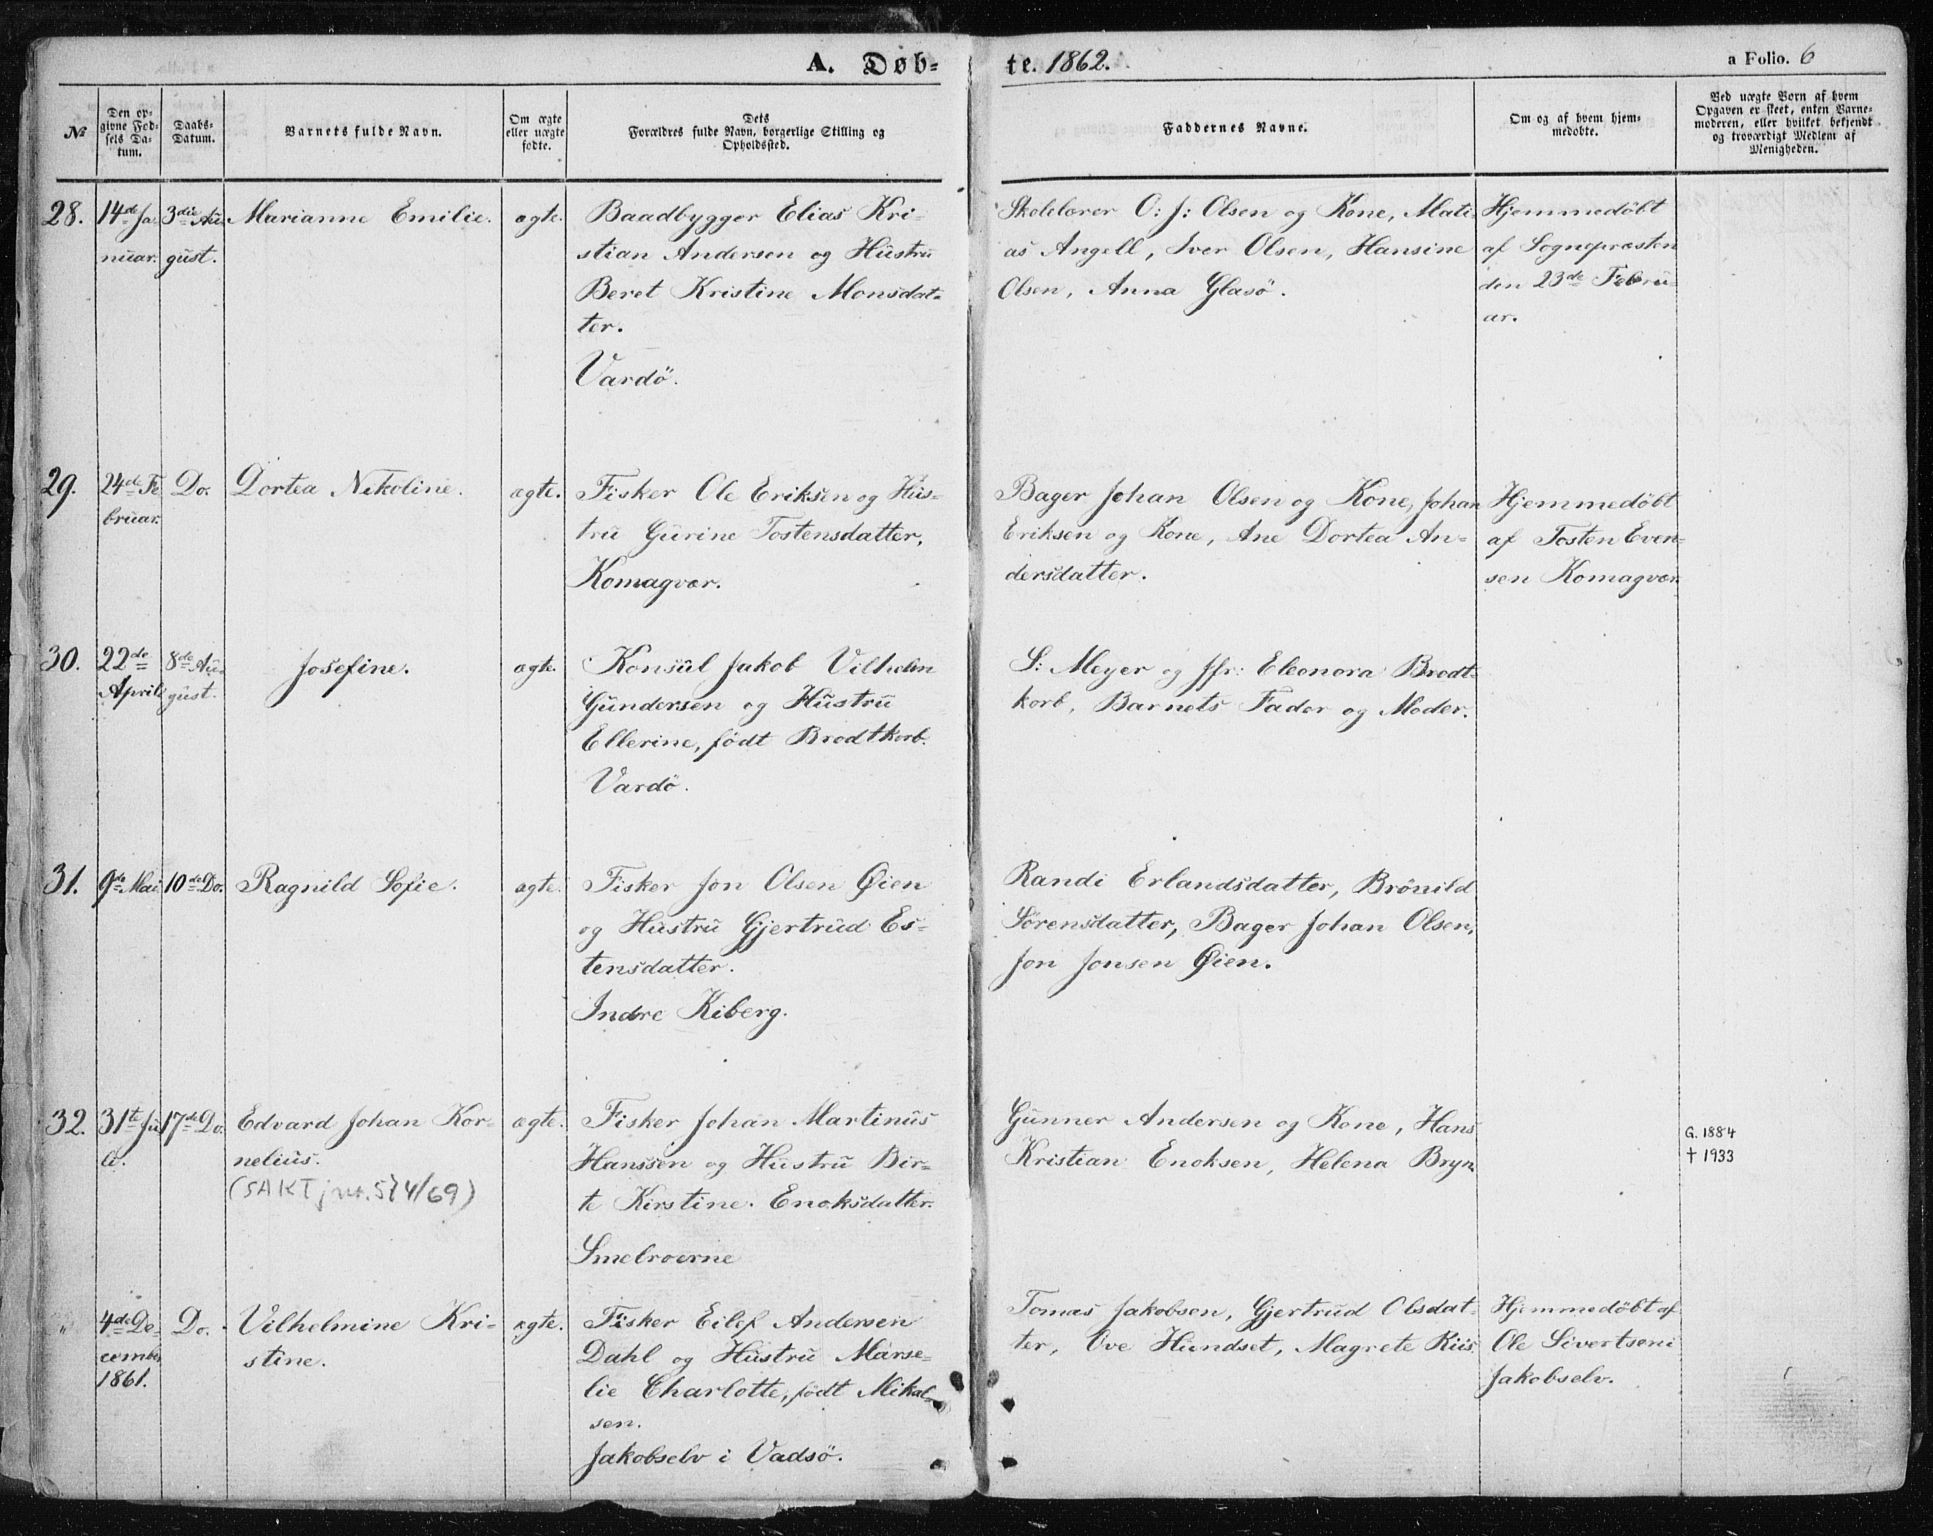 A. Døbte. 1862. a Folio. 6
№
Den opgivne Fødsels Datum.
Daabs-Datum.
Barnets fulde Navn.
Om ægte eller uægte fødte.
Dets Forældres fulde Navn, borgerlige Stilling og Opholdssted.
Faddernes Navne.
Om og af hvem hjemmedøbte.
Ved uægte Børn af hvem Opgaven er skeet, enten Barnemoderen, eller hvilket bekjendt og troværdigt Medlem af Menigheden.
28.
14de Ja-
nuar.
3die Au-
gust.
Marianne Emilie.
ægte.
Baadbygger Elias Kri-
stian Andersen og Hustru
Beret Kristine Monsdat-
ter.
Vardö.
Skolelærer O: J: Olsen og Kone, Mati-
as Angell, Iver Olsen, Hansine
Olsen, Anna Glasö.
Hjemmedöbt
af Sognepræsten
den 23de Febru-
ar.
29.
24de Fe
bruar.
Do.
Dortea Nikoline.
ægte.
Fisker Ole Eriksen og Hus-
tru Gurine Tostensdatter,
Komagvær.
Bager Johan Olsen og Kone, Johan
Eriksen og Kone, Ane Dortea An-
dersdatter.
Hjemmedöbt
af Tosten Even-
sen Komagvær.
30.
22de
April
8de Au-
gust.
Josefine.
ægte.
Konsul Jakob Vilhelm
Gundersen og Hustru
Ellerine, födt Brodtkorb.
Vardö.
S: Meyer og Jfr: Eleonora Brodt-
korb, Barnets Fader og Moder.
31.
9de Mai
10de Do.
Ragnild Sofie.
ægte.
Fisker Jon Olsen Øien
og Hustru Gjertrud Es-
tensdatter.
Indre Kiberg.
Randi Erlandsdatter, Brönild
Sörensdatter, Bager Johan Olsen,
Jon Jonsen Øien.
32.
31te Ju
li.
17de Do.
Edvard Johan Kor-
nelius.
(SAKT jnr. 574/69)
ægte.
Fisker Johan Martinus
Hanssen og Hustru Bir-
te Kirstine Enoksdatter.
Smelrorerne
Gunner Andersen og Kone, Hans
Kristian Enoksen, Helena Bryn
G. 1884
† 1933
"
4de De-
cember
1861.
Do.
Vilhelmine Kri-
stine.
ægte.
Fisker Eilef Andersen
Dahl og Hustru Marse-
lie Charlotte, födt Mikal-
sen.
Jakobselv i Vadsö.
Tomas Jakobsen, Gjertrud Olsdat-
ter, Ove Hundset, Magrete Kiis.
Hjemmedöbt af
Ole Sivertsen i
Jakobselv.